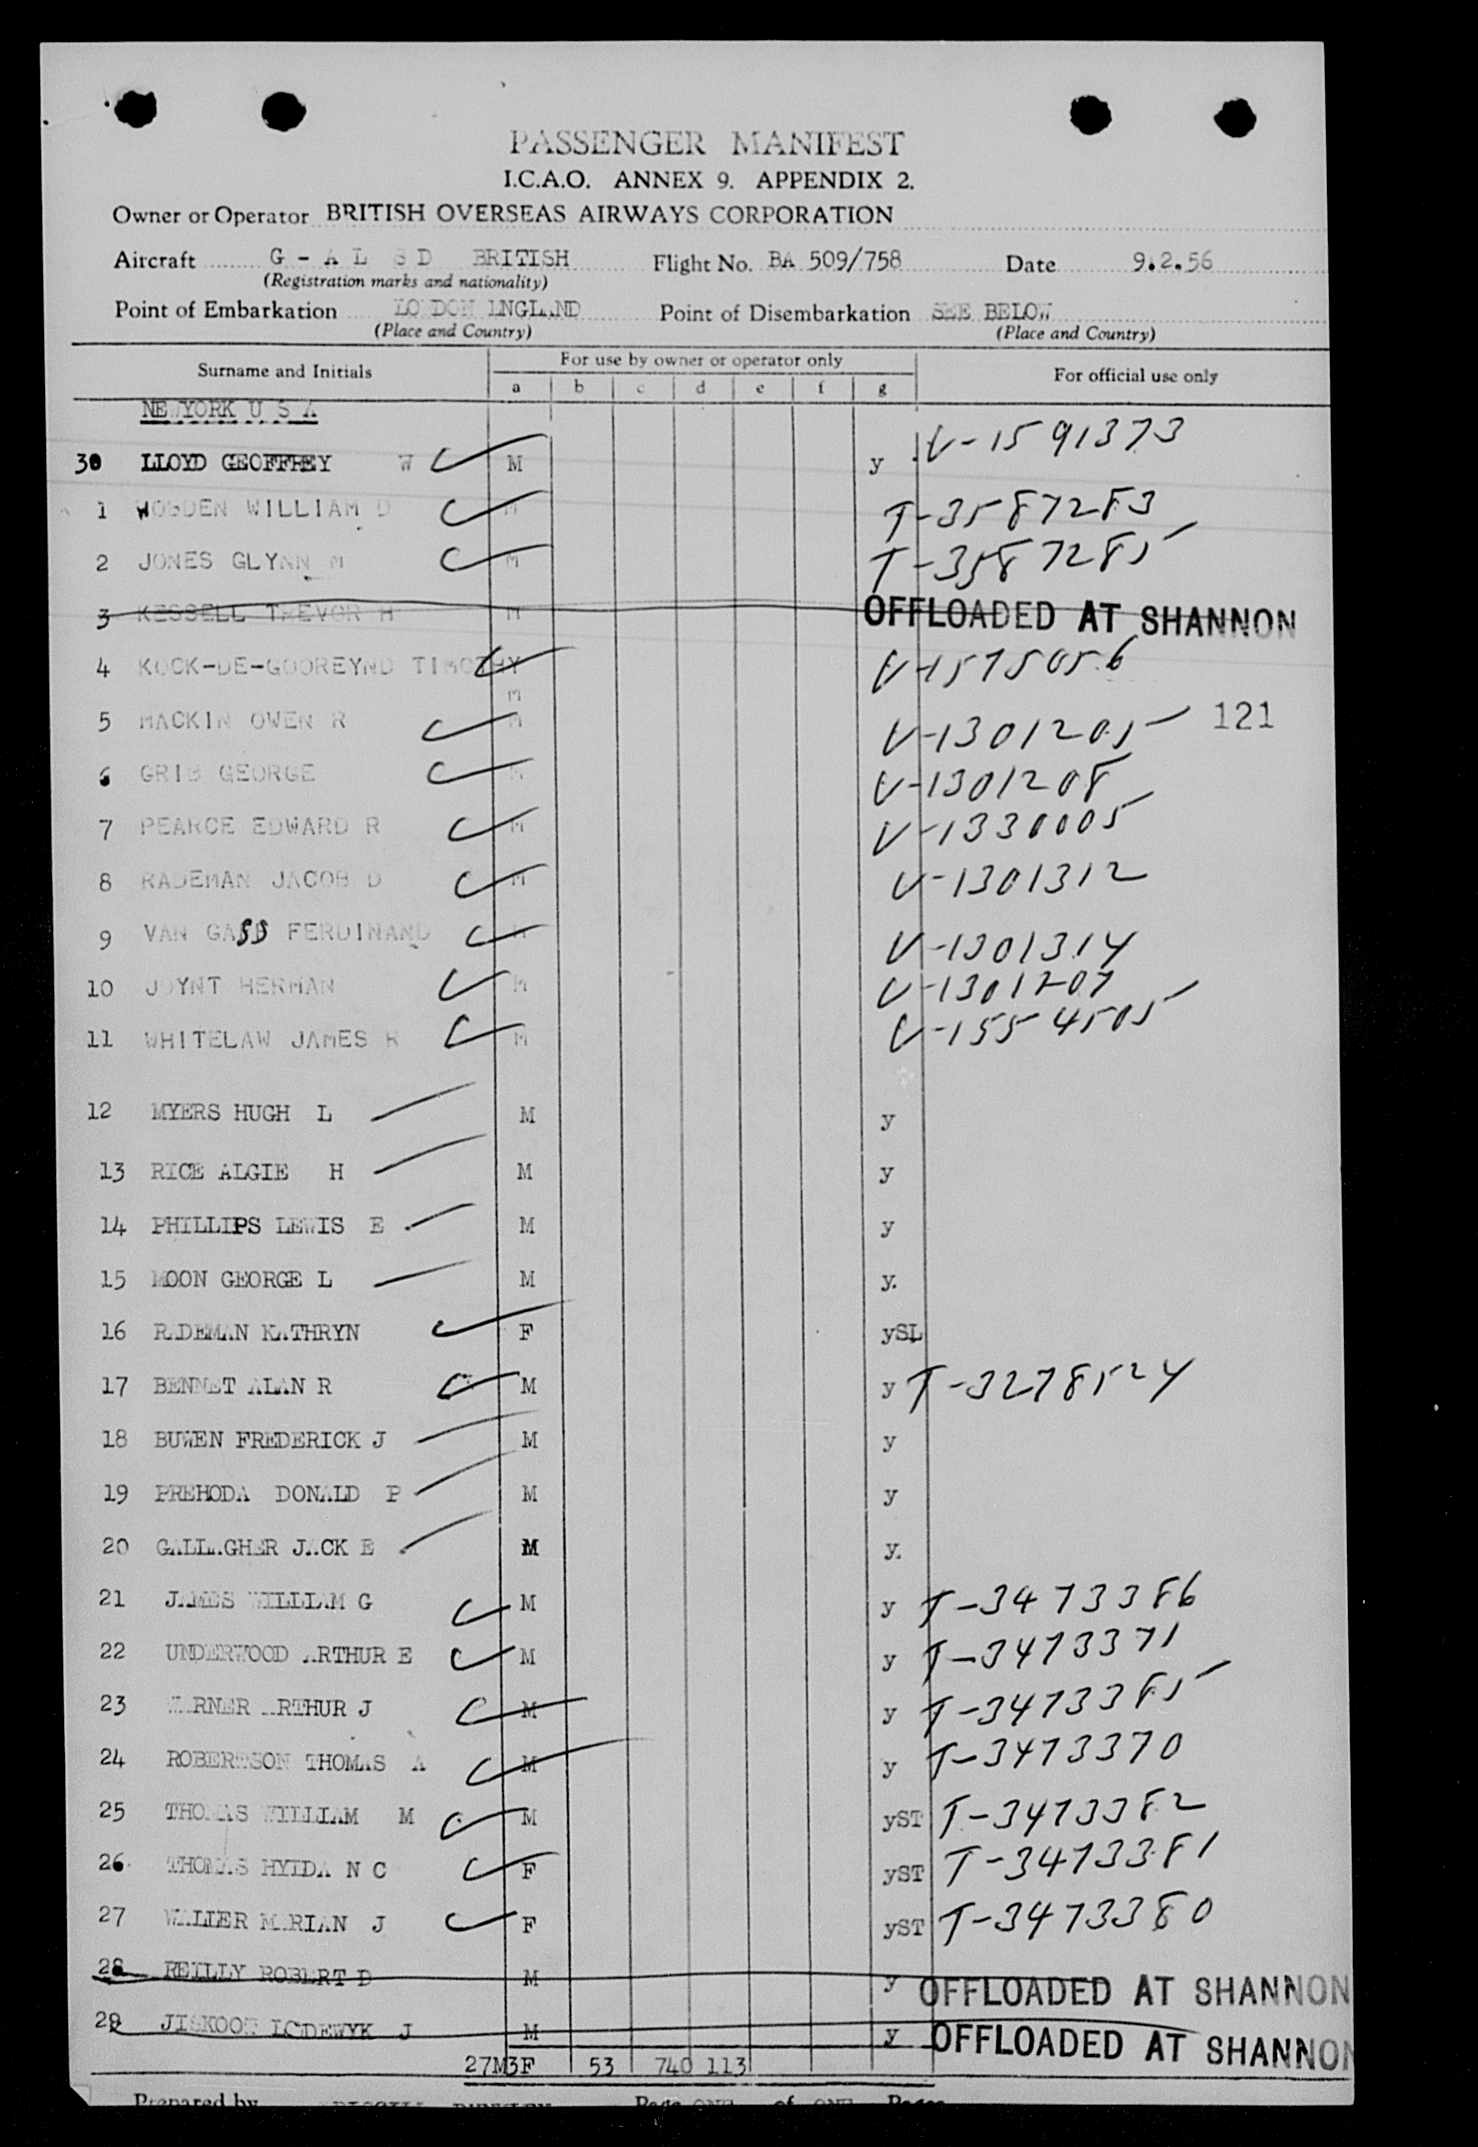 PASSENGER MANIFEST
I.C.A.O. ANNEX 9. APPENDIX 2.
Owner or Operator BRITISH OVERSEAS AIRWAYS CORPORATION
Aircraft G - A L S D BRITISH Flight No. BA 509/758 Date 9.2.56
(Registration marks and nationality)
Point of Embarkation LONDON ENGLAND Point of Disembarkation SEE BELOW
(Place and Country) (Place and Country)
Surname and Initials For use by owner or operator only For official use only
a b c d e f g
NEWYORK U S A
30 LLOYD GEOFFREY W M y V-1591373
1 WOGDEN WILLIAM D M T-3587283
2 JONES GLYNN M M T-3587285
3 KESSELL TREVOR H M OFFLOADED AT SHANNON
4 KOCK-DE-GOOREYND TIMOTHY V-1575056
M
5 MACKIN OWEN R M V-1301205 121
6 GRIB GEORGE M V-1301208
7 PEARCE EDWARD R M V-1330005
8 RADEMAN JACOB D M V-1301312
9 VAN GASS FERDINAND M V-1301314
10 JOYNT HERMAN M V-1301207
11 WHITELAW JAMES R M V-1554505
12 MYERS HUGH L M y
13 RICE ALGIE H M y
14 PHILLIPS LEWIS E M y
15 MOON GEORGE L M y.
16 RADEMAN KATHRYN F ySL
17 BENNET ALAN R M y T-3278524
18 BUWEN FREDERICK J M y
19 PREHODA DONALD P M y
20 GALLAGHER JACK E M y.
21 JAMES WILLIAM G M y T-3473386
22 UNDERWOOD ARTHUR E M y T-3473371
23 WARNER ARTHUR J M y T-3473385
24 ROBERTSON THOMAS A M y T-3473370
25 THOMAS WILLIAM M M yST T-3473382
26 THOMAS HYIDA N C F yST T-3473381
27 WALLER MARIAN J F yST T-3473380
28 REILLY ROBERT D M y OFFLOADED AT SHANNON
29 JISKOOT LODEWYK J M y OFFLOADED AT SHANNON
27M3F 53 740 113
Prepared by Page ONE of ONE Pages